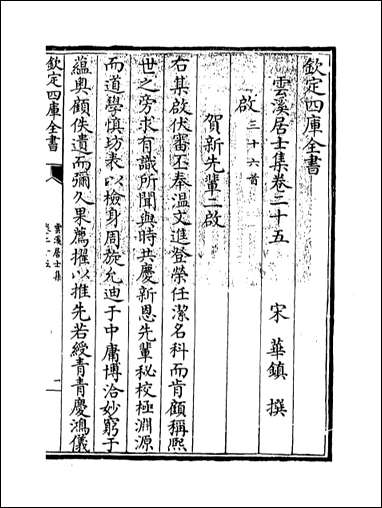 欽定四庫全書
雲溪居士集卷二十五
宋 華鎮 撰
啟 三十六首
賀新先輩二啟
右某啟伏審丕奉溫文進登榮任潔名科而肯顧稱熙
世之旁求有識所聞與時共慶新恩先輩秘校極淵源
而道學慎坊表以檢身周旋允迪于中庸博洽妙窮于
蘊奧顧佚遺而彌久果薦擢以推先若綬青青慶鴻儀
欽定四庫全書
雲溪居士集
卷二十五
一